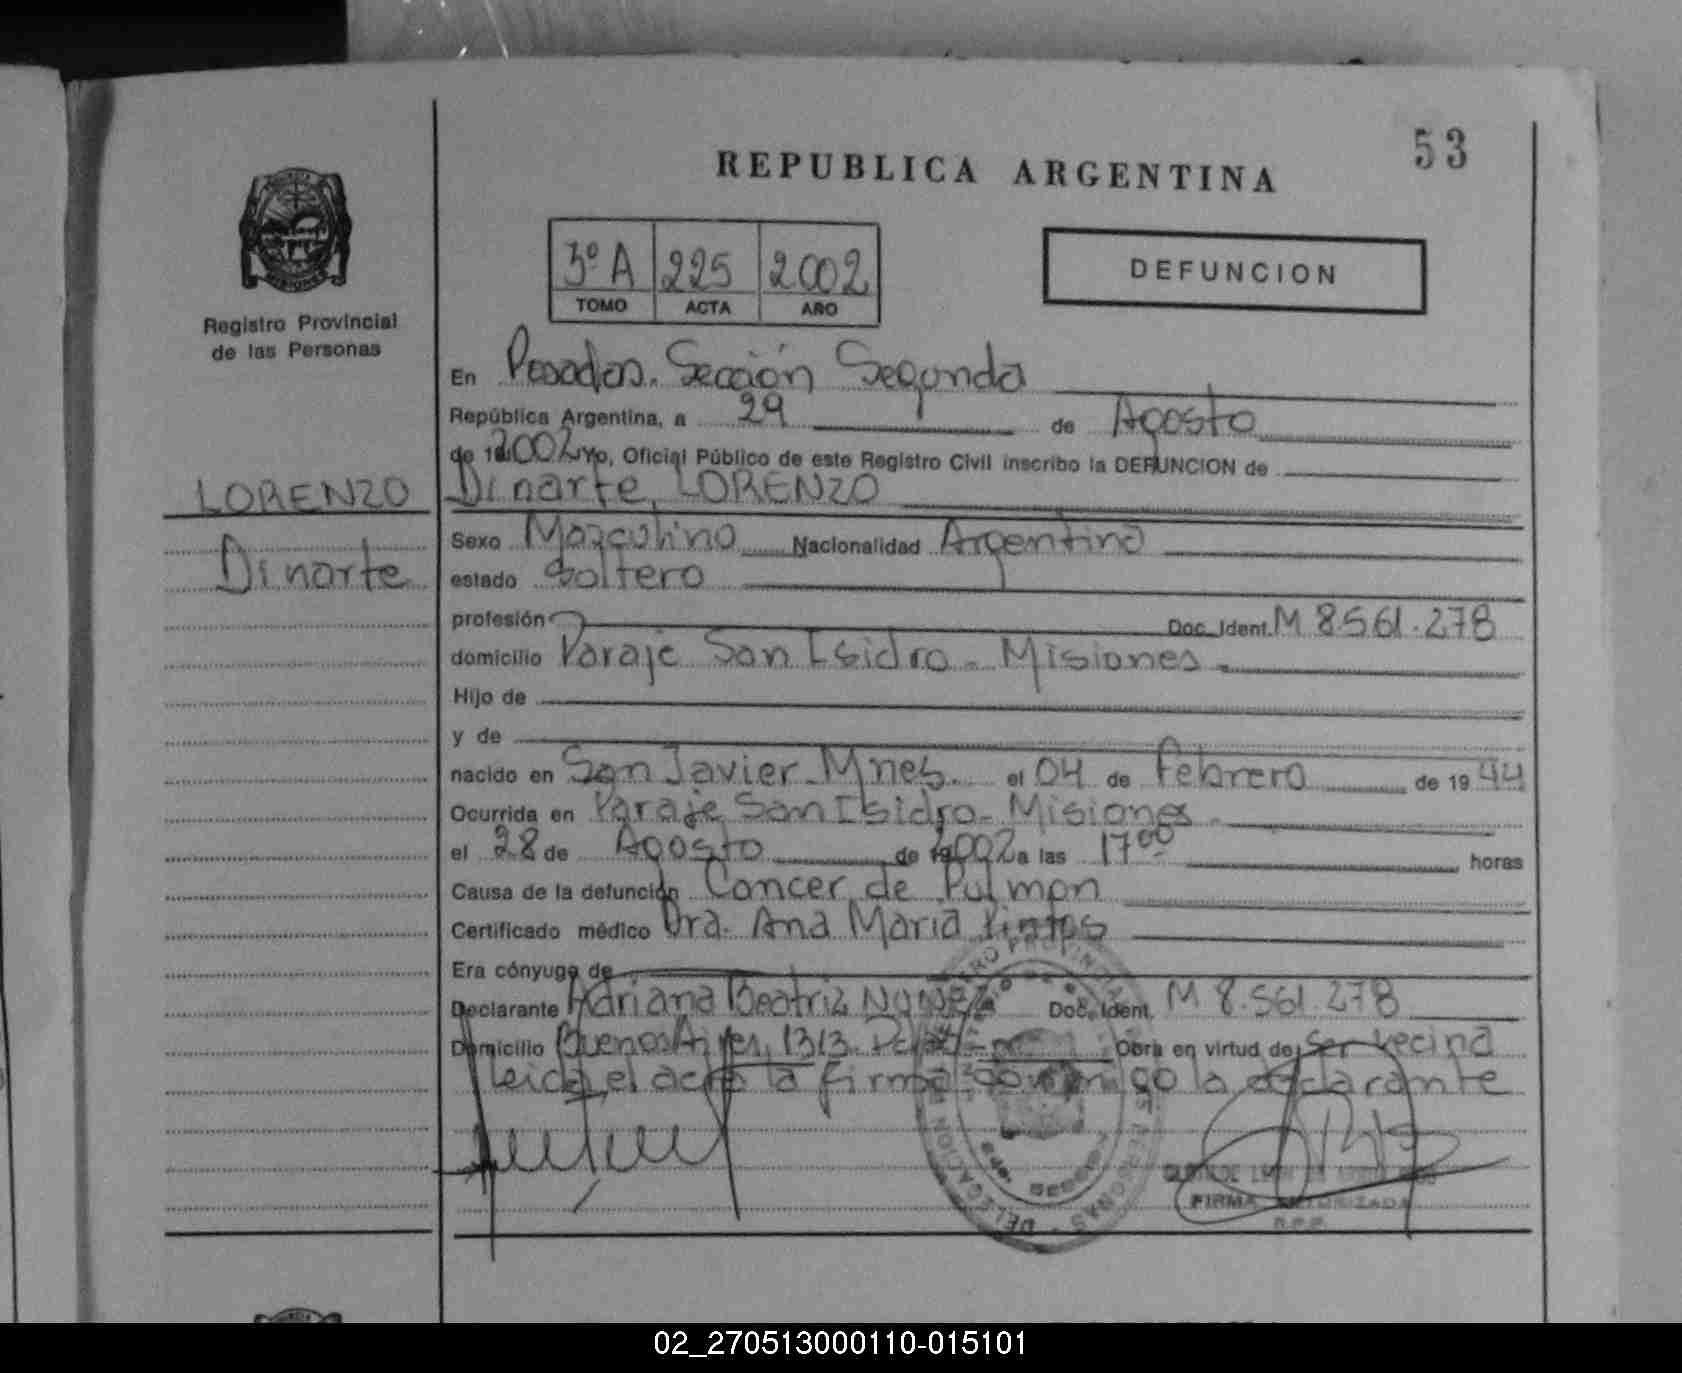 53
REPUBLICA ARGENTINA
3º A 225 2002
TOMO ACTA AÑO
DEFUNCION
Registro Provincial
de las Personas
En Posadas. Sección Segunda
República Argentina, a 29 de Agosto
de 2002 Yo, Oficial Público de este Registro Civil inscribo la DEFUNCION de
LORENZO
Dinarte
Dinarte, LORENZO
Sexo Masculino Nacionalidad Argentina
estado Soltero
profesión Doc. Ident. M 8.561.278
domicilio Paraje San Isidro - Misiones -
Hijo de
y de
nacido en San Javier - Mnes. el 04 de Febrero de 1944
Ocurrida en Paraje San Isidro - Misiones -
el 28 de Agosto de 2002 a las 17 00 horas
Causa de la defunción Cancer de Pulmon
Certificado médico Dra. Ana Maria Pintos
Era cónyuge de
Declarante Adriana Beatriz NUÑEZ Doc. Ident. M 8.561.278
Domicilio Buenos Aires 1313 Obra en virtud de ser vecina
leida el acta la firma conmigo la declarante
FIRMA AUTORIZADA
02_270513000110-015101